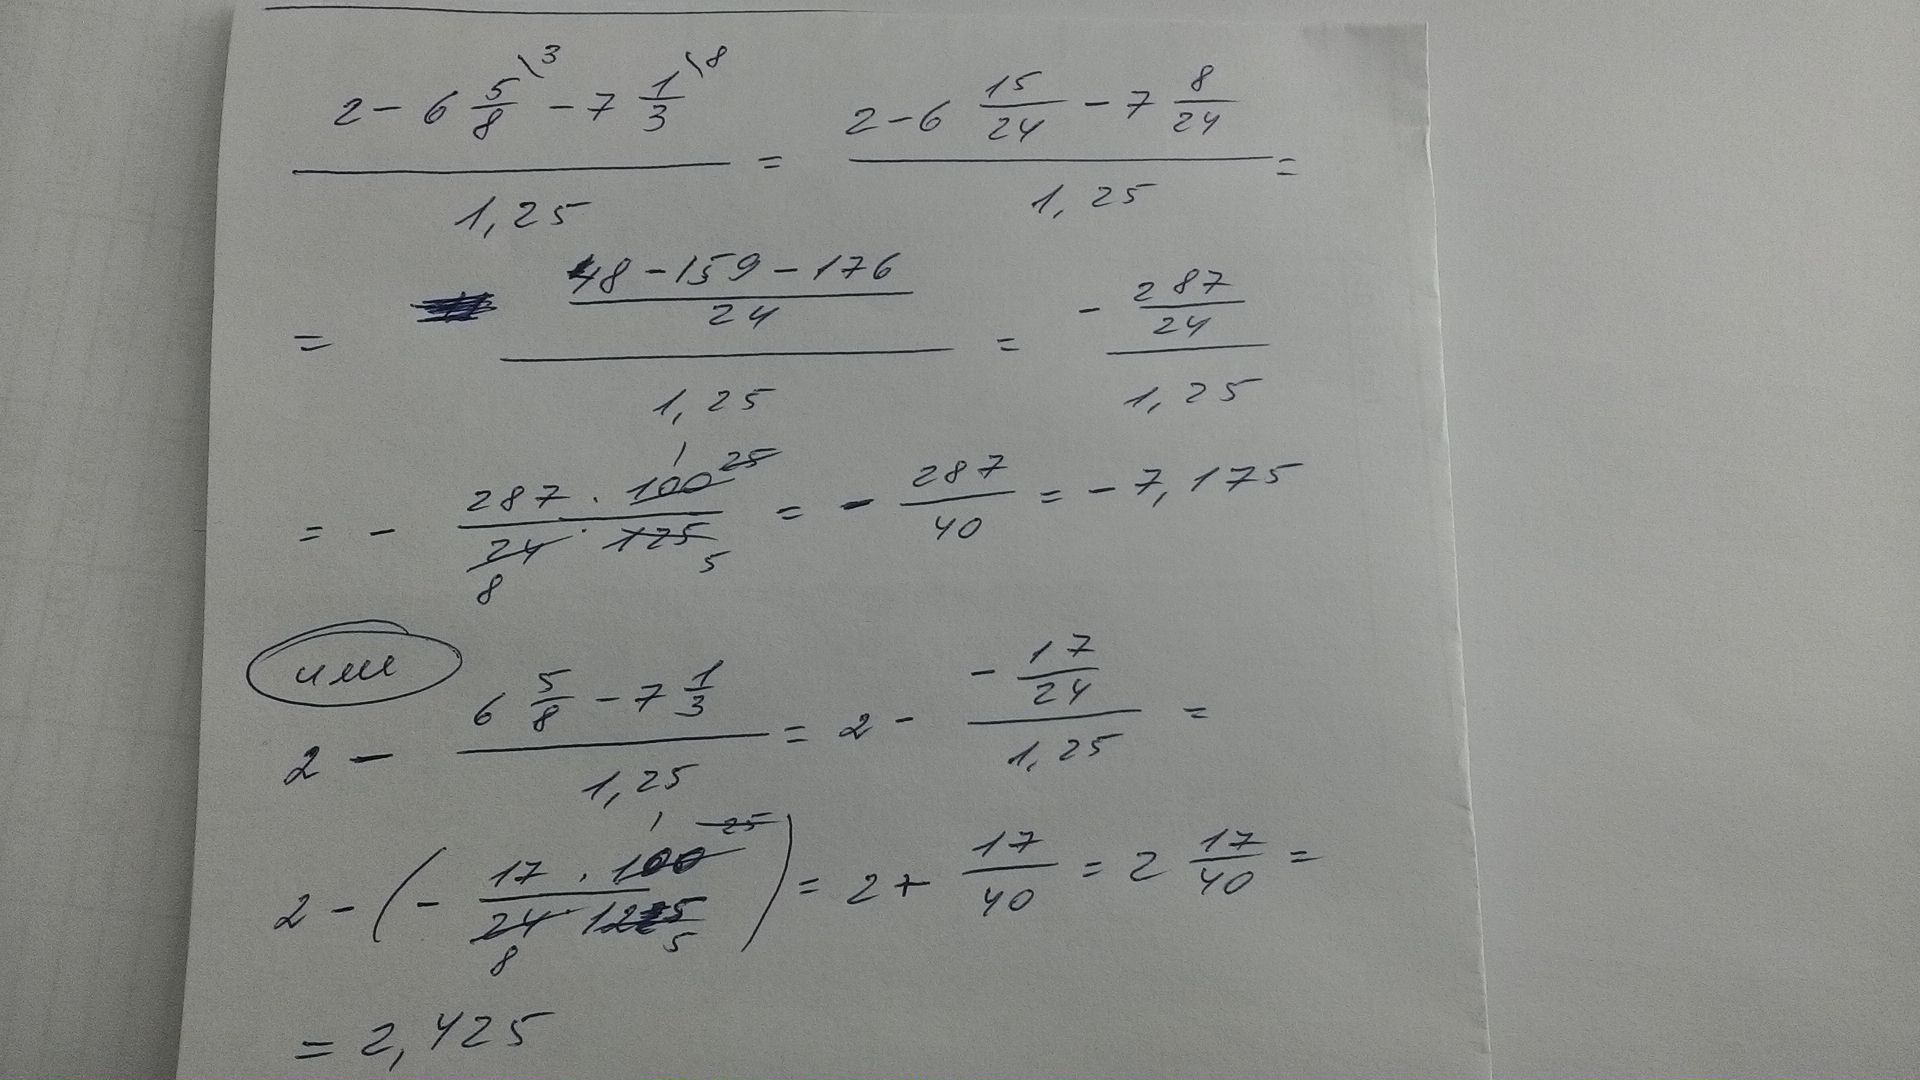 2 - 6 5/8 \3 - 7 1/3 \8 / 1,25 = 2 - 6 15/24 - 7 8/24 / 1,25 =
= 48 - 159 - 176 / 24 / 1,25 = - 287/24 / 1,25
= - 287 · 100 1 25 / 24 · 125 8 5 = - 287/40 = - 7,175
или
2 - 6 5/8 - 7 1/3 / 1,25 = 2 - - 17/24 / 1,25 =
2 - ( - 17 · 100 1 25 / 24 · 125 8 5 ) = 2 + 17/40 = 2 17/40 =
= 2,425